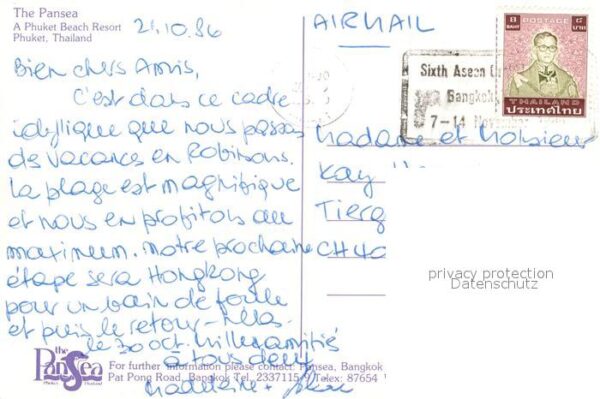 The Pansea
A Phuket Beach Resort
Phuket, Thailand
21.10.86
AIRMAIL
8 BAHT POSTAGE ๘ บาท
THAILAND
ประเทศไทย
Sixth Asean
Bangkok,
7-14
Bien chers Amis,
C'est dans ce cadre
idyllique que nous passons
des vacances en Robinsons.
La plage est magnifique
et nous en profitons au
maximum. Notre prochaine
étape sera Hongkong
pour un bain de foule
et puis le retour
le 30 oct. Mille amitiés
à tous deux
Madeleine +
Madame et Monsieur
Kay
Tierg
CH 40
privacy protection
Datenschutz
the PanSea
Phuket Thailand
For further information please contact: Pansea, Bangkok
Pat Pong Road, Bangkok Tel. 2337115-9 Telex: 87654